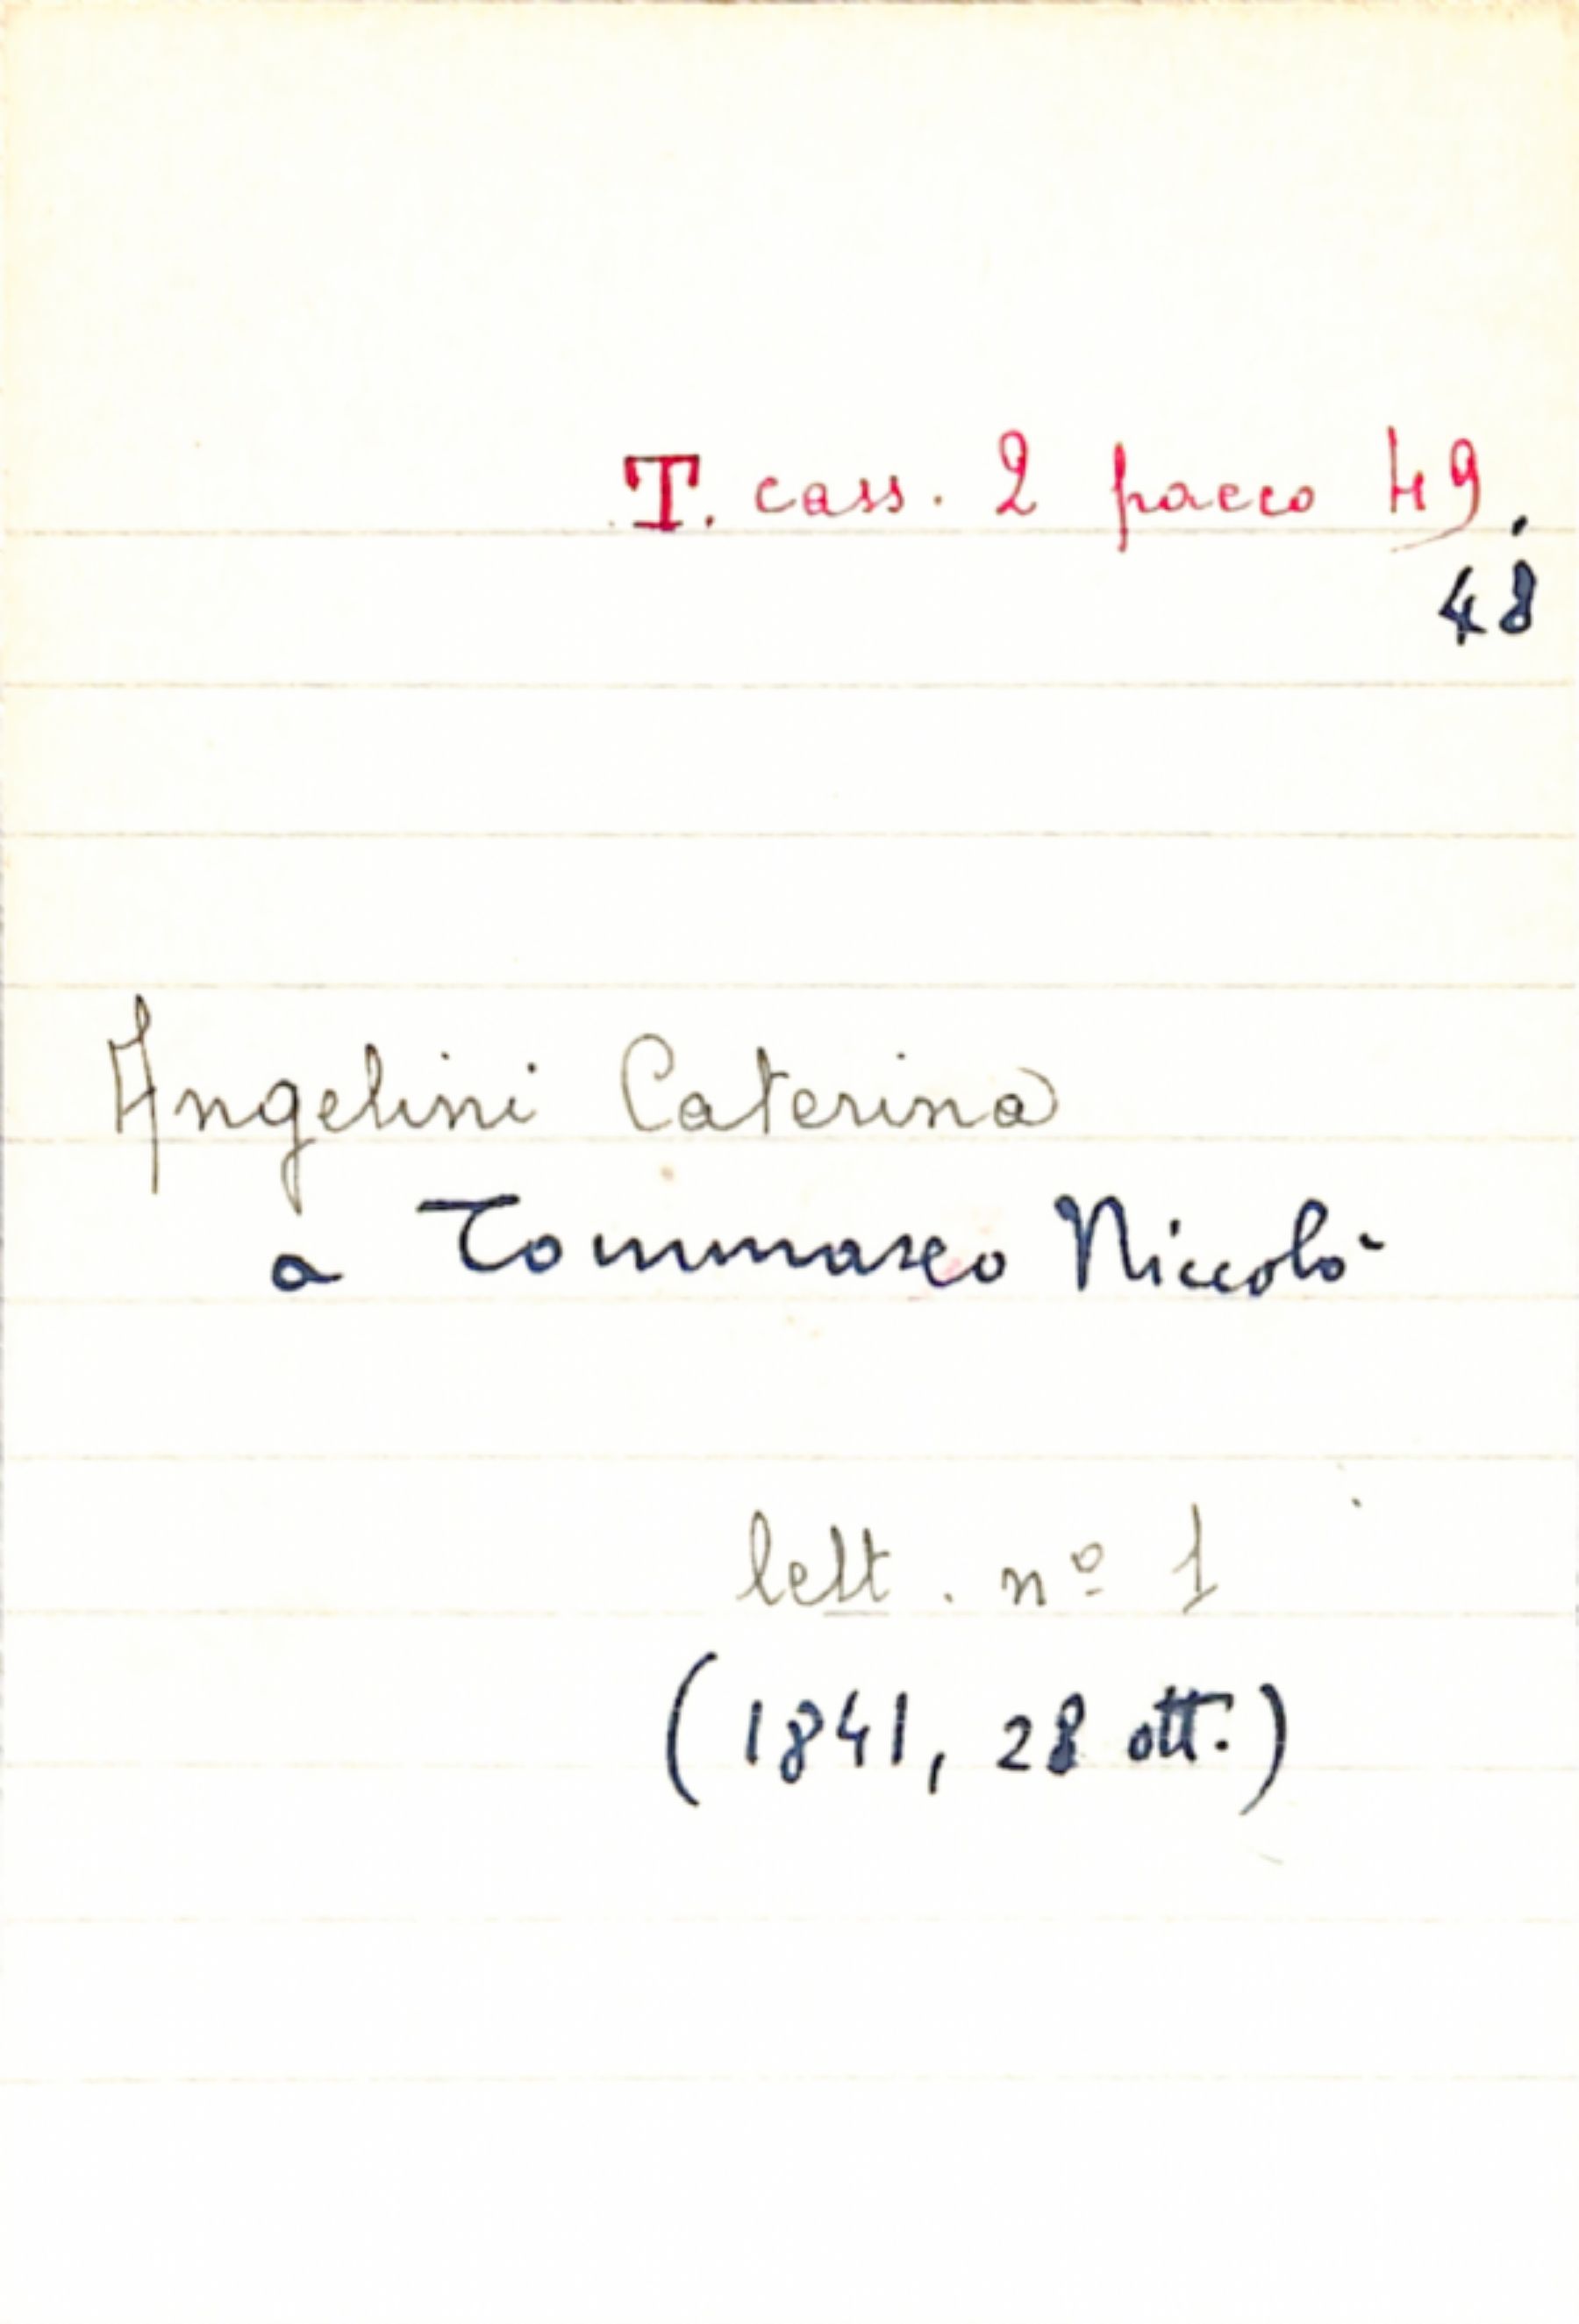 T. cass. 2 pacco 49.
48
Angelini Caterina
a Tommaseo Niccolò
lett. nº 1
(1841, 28 ott.)